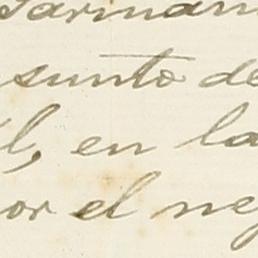 sunto de
l, en la
or el neg